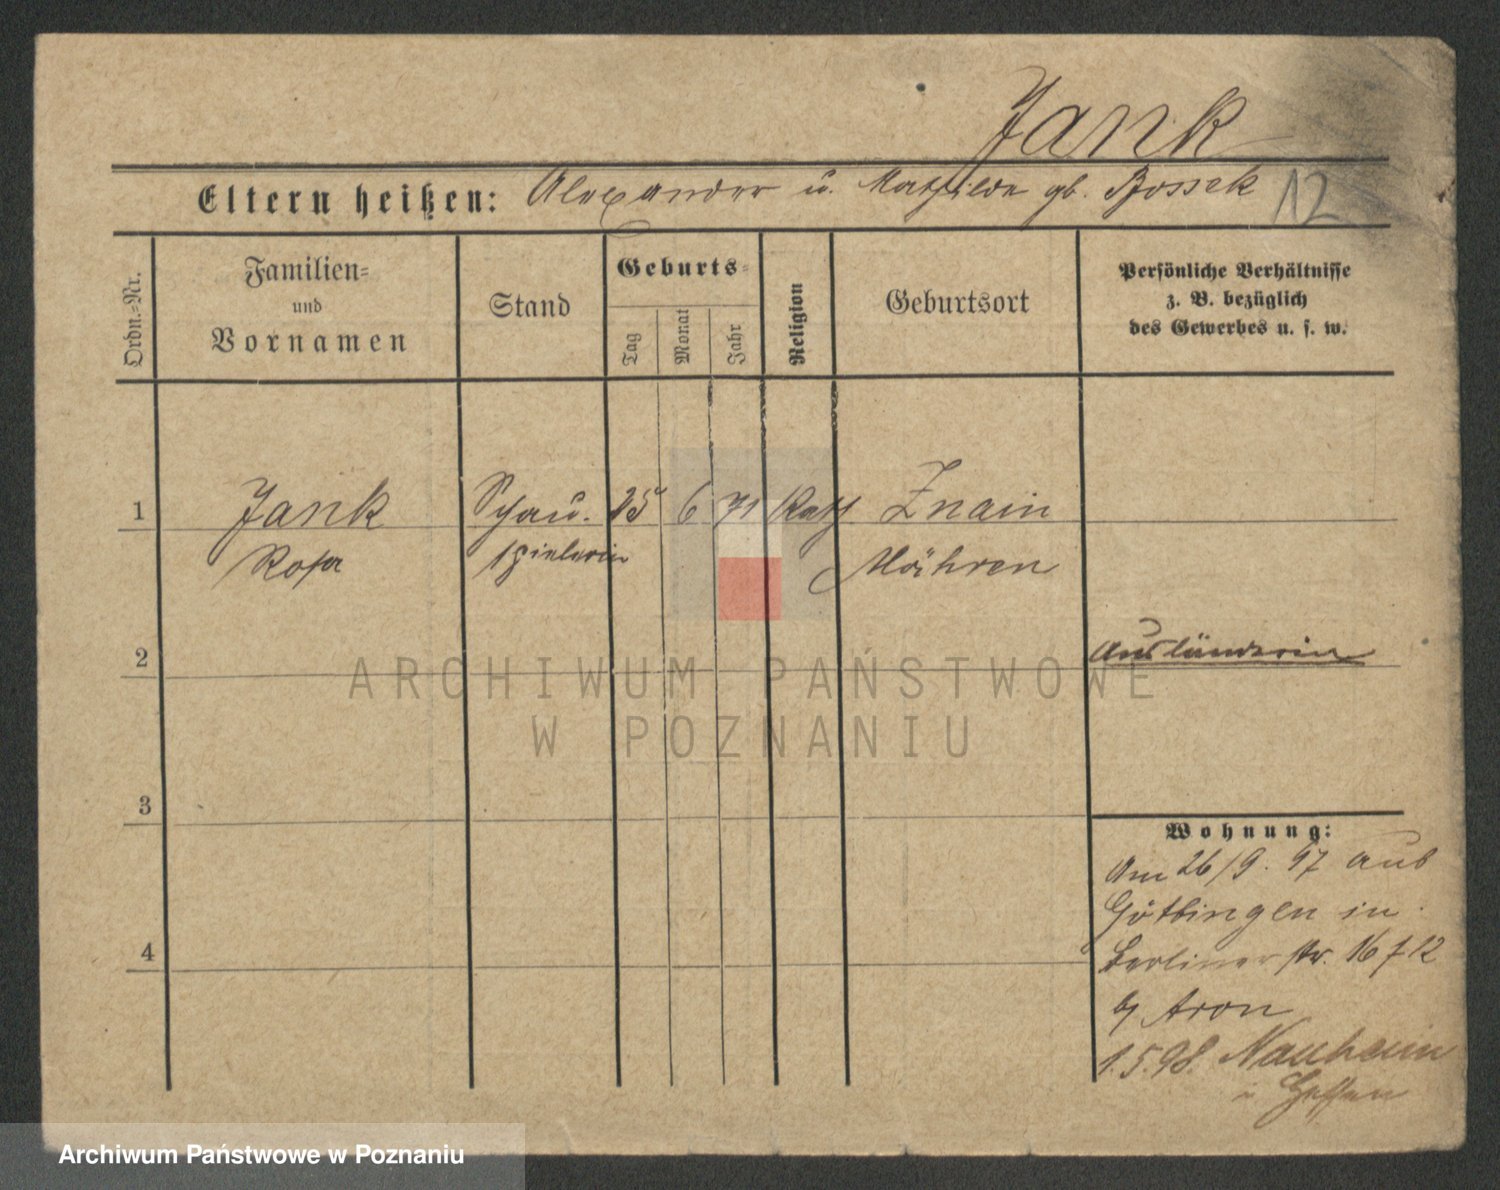 Jank
Eltern heißen: Alexander u. Mathilde gb. Bossek
12
Ordn.-Nr.
Familien-
und
Vornamen
Stand
Geburts-
Tag
Monat
Jahr
Religion
Geburtsort
Persönliche Verhältnisse
z. B. bezüglich
des Gewerbes u. s. w.
1
Jank
Rosa
Schau-
spielerin
25
6
71
Kath
Znaim
Mähren
2
Ausländerin
3
4
Wohnung:
Am 26/9. 97 aus
Göttingen in
Berliner str. 16 f 12
by Aron
1.5.98. Nauheim
i Hessen
ARCHIWUM PAŃSTWOWE
W POZNANIU
Archiwum Państwowe w Poznaniu